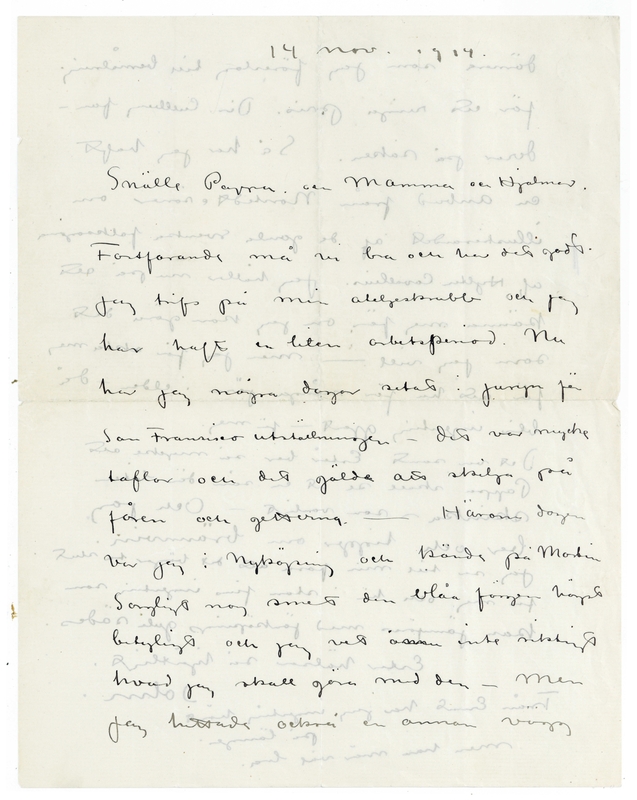 14 nov. 1914.
Snälle Pappa. och Mamma och Hjalmar.
Fortfarande må vi bra och har det godt.
Jag trifs på min och jag
har haft en liten arbetsperiod. Nu
har jag några dagar setat i juryn för
San Francisco utställningen – det var mycke
taflor och det gälde att skilja på
fåren och getterna. — Häromdagen
var jag i Nyköping och på
Sorgligt nog smet den blåa färgen högst
betydligt och jag vet inte riktigt
hvad jag skall göra med den – Men
jag hittade också en annan